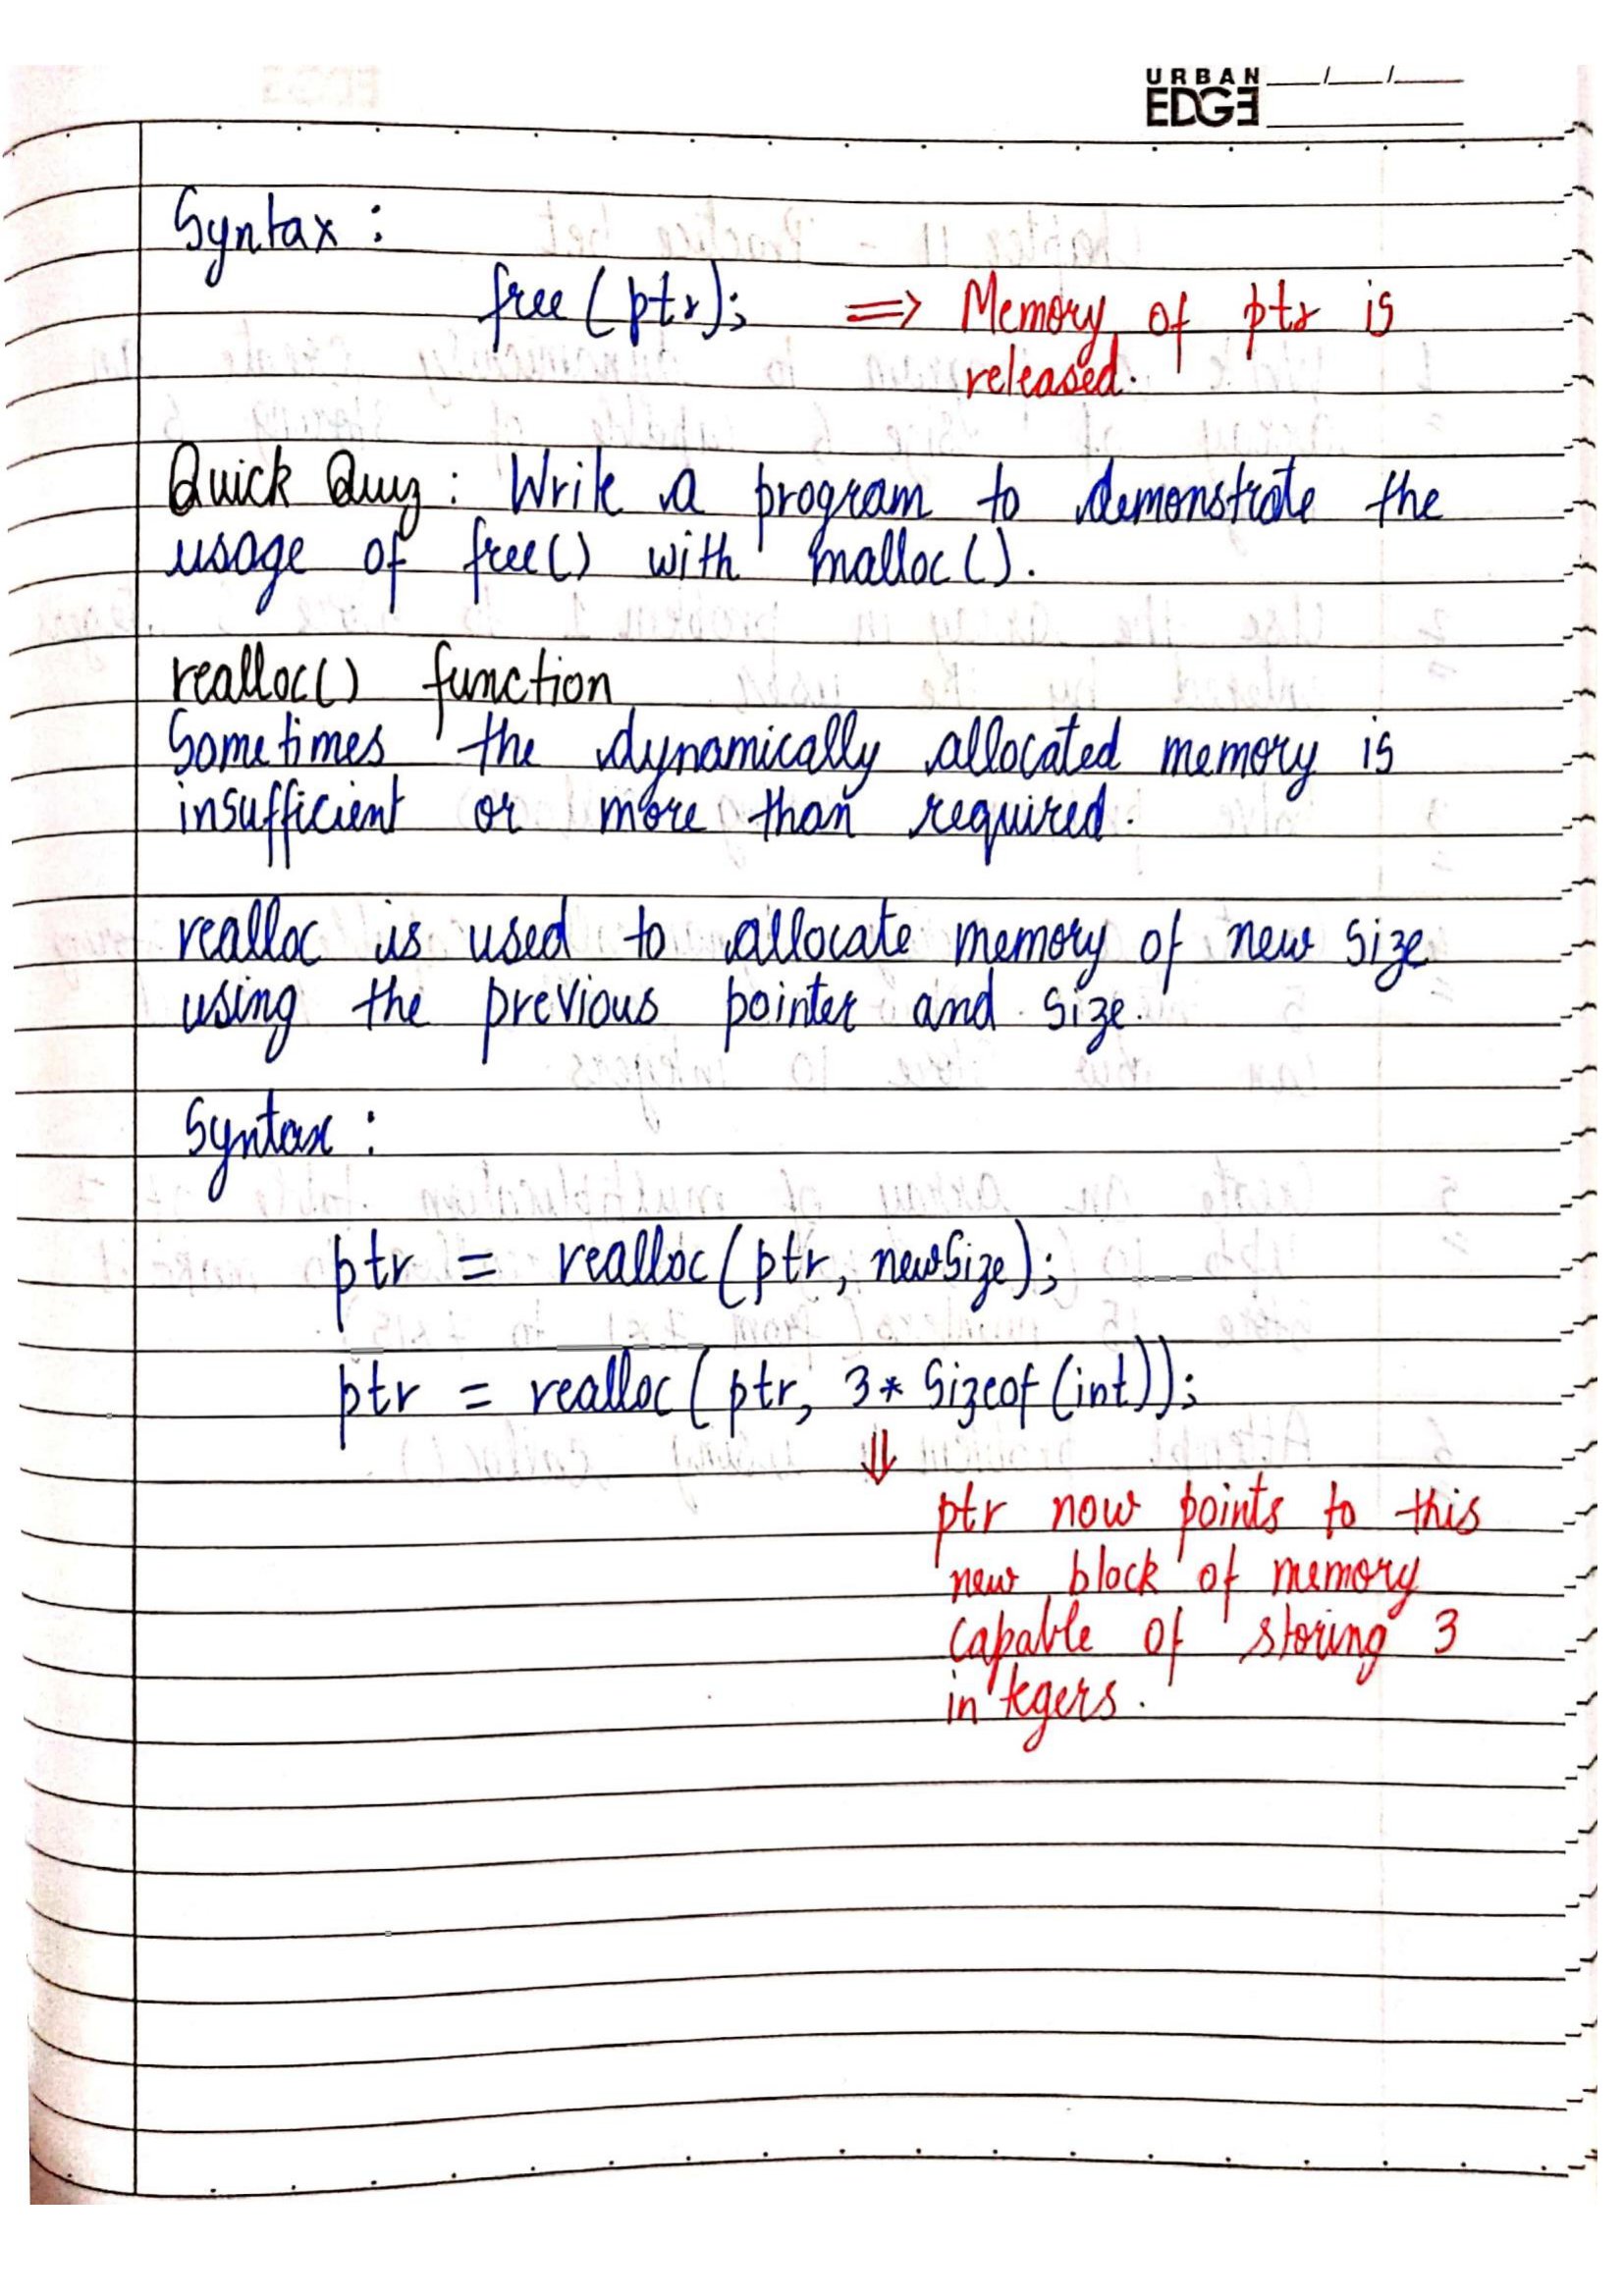 URBAN
EDGE
Syntax :
free(ptr); => Memory of ptr is
released.
Quick Quiz : Write a program to demonstrate the
usage of free() with malloc().
realloc() function
Sometimes the dynamically allocated memory is
insufficient or more than required.
realloc is used to allocate memory of new size
using the previous pointer and size.
Syntax :
ptr = realloc(ptr, newSize);
ptr = realloc(ptr, 3* Sizeof(int));
⇓
ptr now points to this
new block of memory
capable of storing 3
integers.